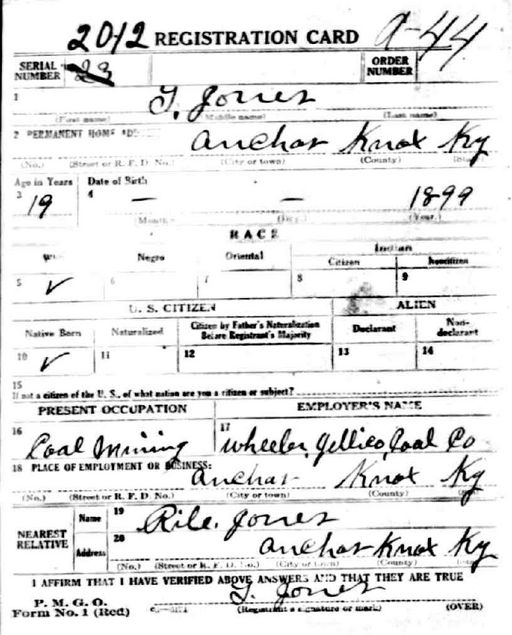 2012 REGISTRATION CARD A-44
SERIAL NUMBER 23 ORDER NUMBER
1 T. Jones
(First name) (Middle name) (Last name)
2 PERMANENT HOME ADDRESS Anchor Knox Ky
(No.) (Street or R. F. D. No.) (City or town) (County) (State)
Age in Years Date of Birth
3 19 4 — — 1899
(Month) (Day) (Year)
RACE
White Negro Oriental Indian
Citizen Noncitizen
5 ✓ 6 7 8 9
U. S. CITIZEN ALIEN
Native Born Naturalized Citizen by Father's Naturalization Before Registrant's Majority Declarant Non-declarant
10 ✓ 11 12 13 14
15
If not a citizen of the U. S., of what nation are you a citizen or subject?
PRESENT OCCUPATION EMPLOYER'S NAME
16 Coal Mining 17 Wheeler, Jellico, Coal Co
18 PLACE OF EMPLOYMENT OR BUSINESS: Anchor Knox Ky
(No.) (Street or R. F. D. No.) (City or town) (County)
NEAREST RELATIVE Name 19 Rile. Jones
Address 20 Anchor Knox Ky
(No.) (Street or R. F. D. No.) (City or town) (County)
I AFFIRM THAT I HAVE VERIFIED ABOVE ANSWERS AND THAT THEY ARE TRUE
P. M. G. O.
Form No. 1 (Red) T. Jones
(Registrant's signature or mark) (OVER)